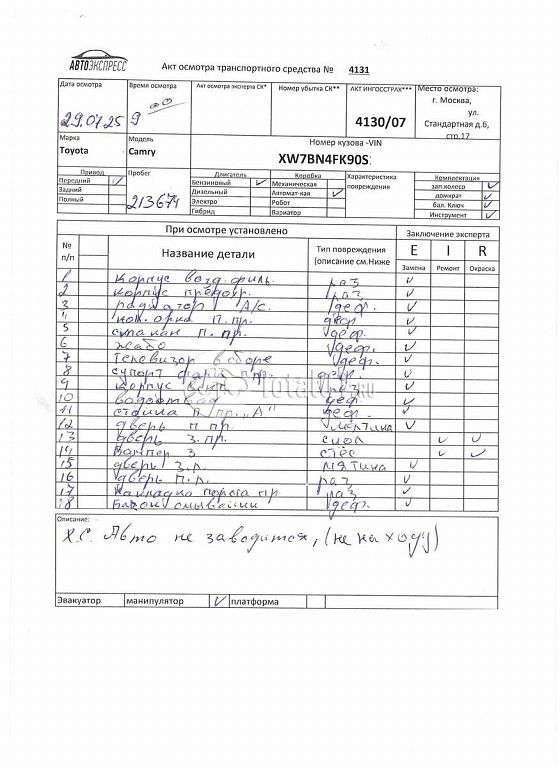 АВТОЭКСПРЕСС
Акт осмотра транспортного средства № 4131
Дата осмотра
29.07.25
Время осмотра
9 00
Акт осмотра эксперта СК*
Номер убытка СК**
АКТ ИНГОССТРАХ***
4130/07
Место осмотра:
г. Москва,
ул.
Стандартная д.6,
стр.17
Марка
Toyota
Модель
Camry
Номер кузова -VIN
XW7BN4FK90S
Привод
Передний ✓
Задний
Полный
Пробег
213674
Двигатель
Бензиновый ✓
Дизельный
Электро
Гибрид
Коробка
Механическая
Автомат-кая ✓
Робот
Вариатор
Характеристика
повреждения
Комплектация
зап.колесо ✓
домкрат ✓
бал. Ключ ✓
Инструмент ✓
При осмотре установлено
Заключение эксперта
№
п/п
Название детали
Тип повреждения
(описание см.Ниже
E I R
Замена Ремонт Окраска
1 корпус возд. филь. раз ✓
2 корпус предохр. раз ✓
3 радиатор А/с. деф. ✓
4 ком. арка П.пр. деф ✓
5 стакан П. пр. деф. ✓
6 жабо деф. ✓
7 телевизор в сборе деф ✓
8 суппорт фары П пр. деф. ✓
9 корпус раз ✓
10 водоотвод деф ✓
11 стойка П/пр. „А" деф. ✓
12 дверь П пр. мятина ✓
13 дверь З.пр. скол ✓ ✓
14 Бампер З стёс ✓ ✓
15 дверь З.л. мятина ✓
16 дверь П.л. раз ✓
17 накладка порога пр раз ✓
18 Бачок омывайки деф. ✓
Описание:
Х.С. Авто не заводится, (не на ходу)
Эвакуатор манипулятор ✓ платформа